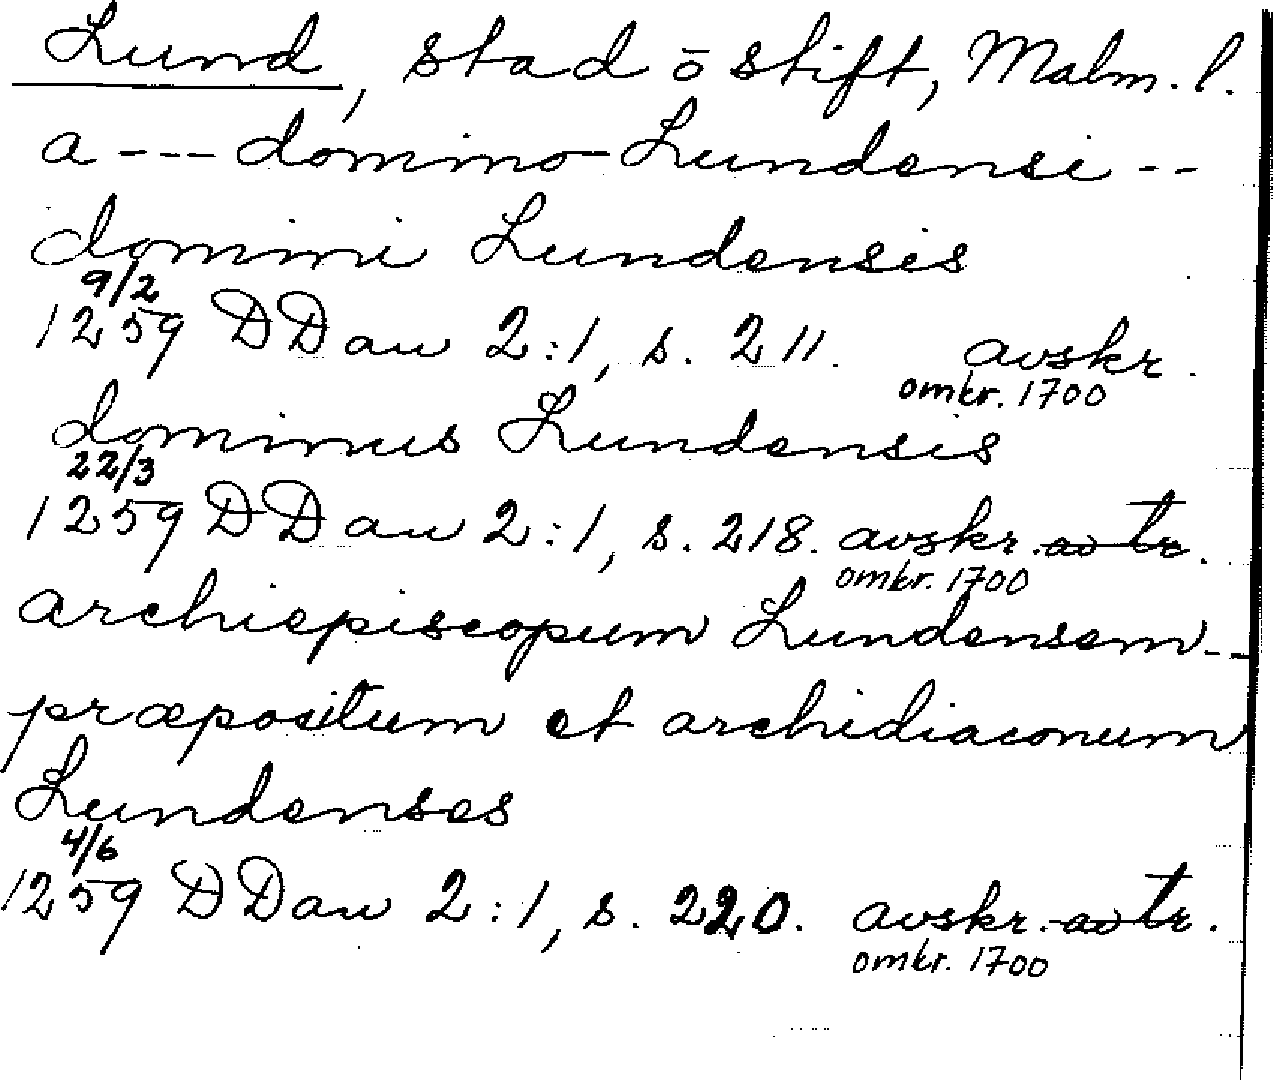 Lund, stad ō stift, Malm. l.
a --- domino Lundensi --
domini Lundensis
9/2
1259 DDan 2:1, s. 211. avskr.
omkr. 1700
dominus Lundensis
22/3
1259 DDan 2:1, s. 218. avskr. av tr.
omkr. 1700
archiepiscopum Lundensem --
præpositum et archidiaconum
Lundenses
4/6
1259 DDan 2:1, s. 220. avskr. av tr.
omkr. 1700